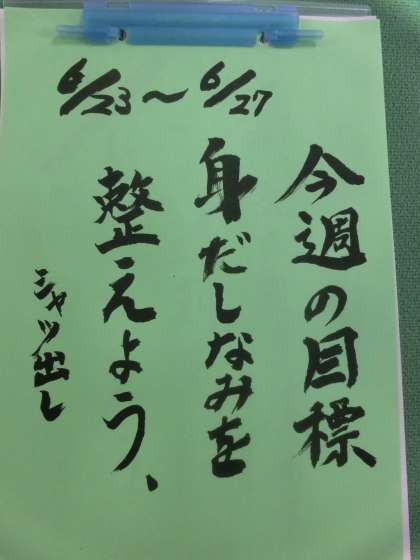 6/23〜6/27
今週の目標
身だしなみを
整えよう、
シャツ出し